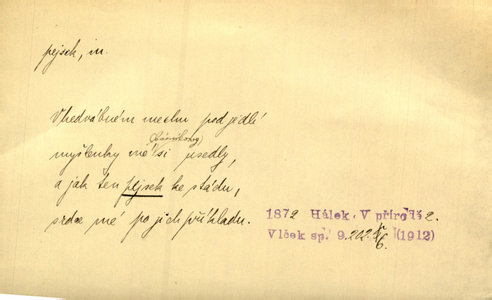 pejsek, m.
V hedvábném mechu pod jedlí
(básníkovy)
myšlenky mé si usedly,
a jak ten pejsek ke stádu,
srdce mé po jich příkladu.
1872 Hálek, V přírodě 2.
Vlček sp. 9. 202. 6. (1912)